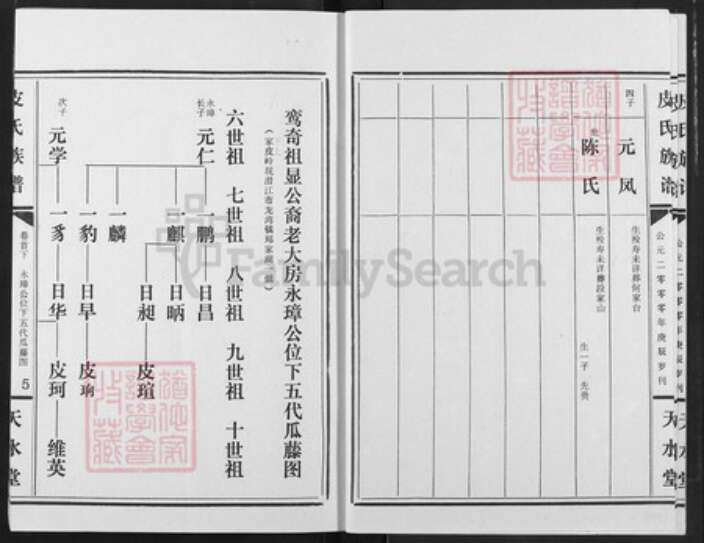 皮氏族谱
公元二〇〇〇年庚辰岁刊
天水堂
四子
元凤
生殁寿未详葬何家台
陈氏
生殁寿未详葬段家山
生一子 先贵
鸾奇祖显公裔老大房永璋公位下五代瓜藤图
六世祖 七世祖 八世祖 九世祖 十世祖
永璋
长子
元仁
一鹏 日昌
一麒 日昞
日昶 皮瑄
一麟
一豹 日早 皮珦
次子
元学
一豸 日华 皮珂 维英
皮氏族谱
卷首下 永璋公位下五代瓜藤图
5
天水堂
FamilySearch